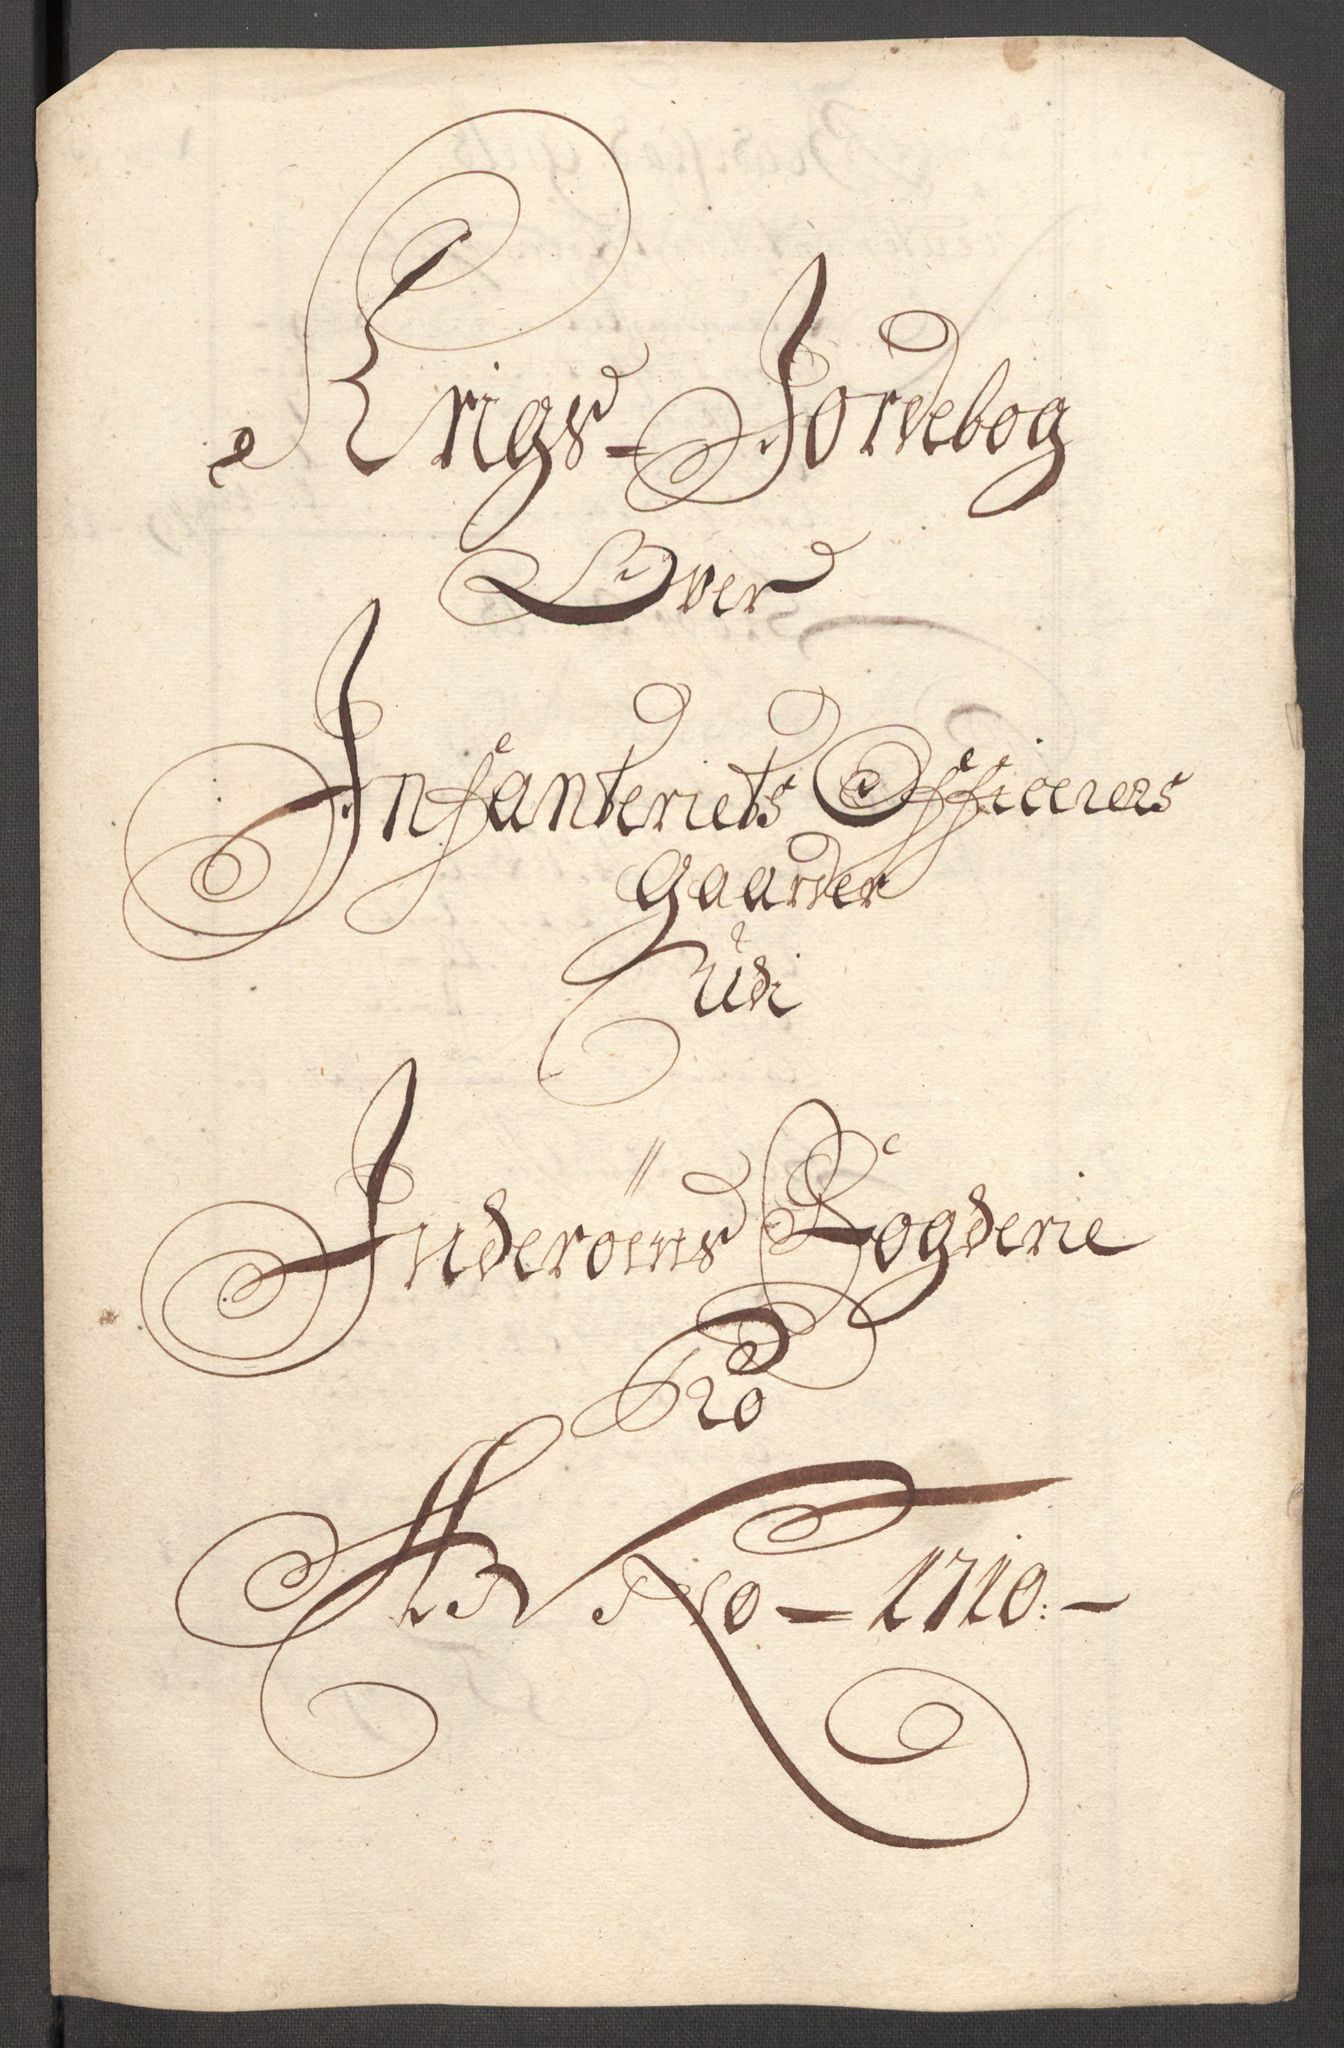 Krigs- Jordebog
Over
Infanteriets Officerers
gaarder
Udi
Inderöens Fogderie
Pro
Anno - 1710. -